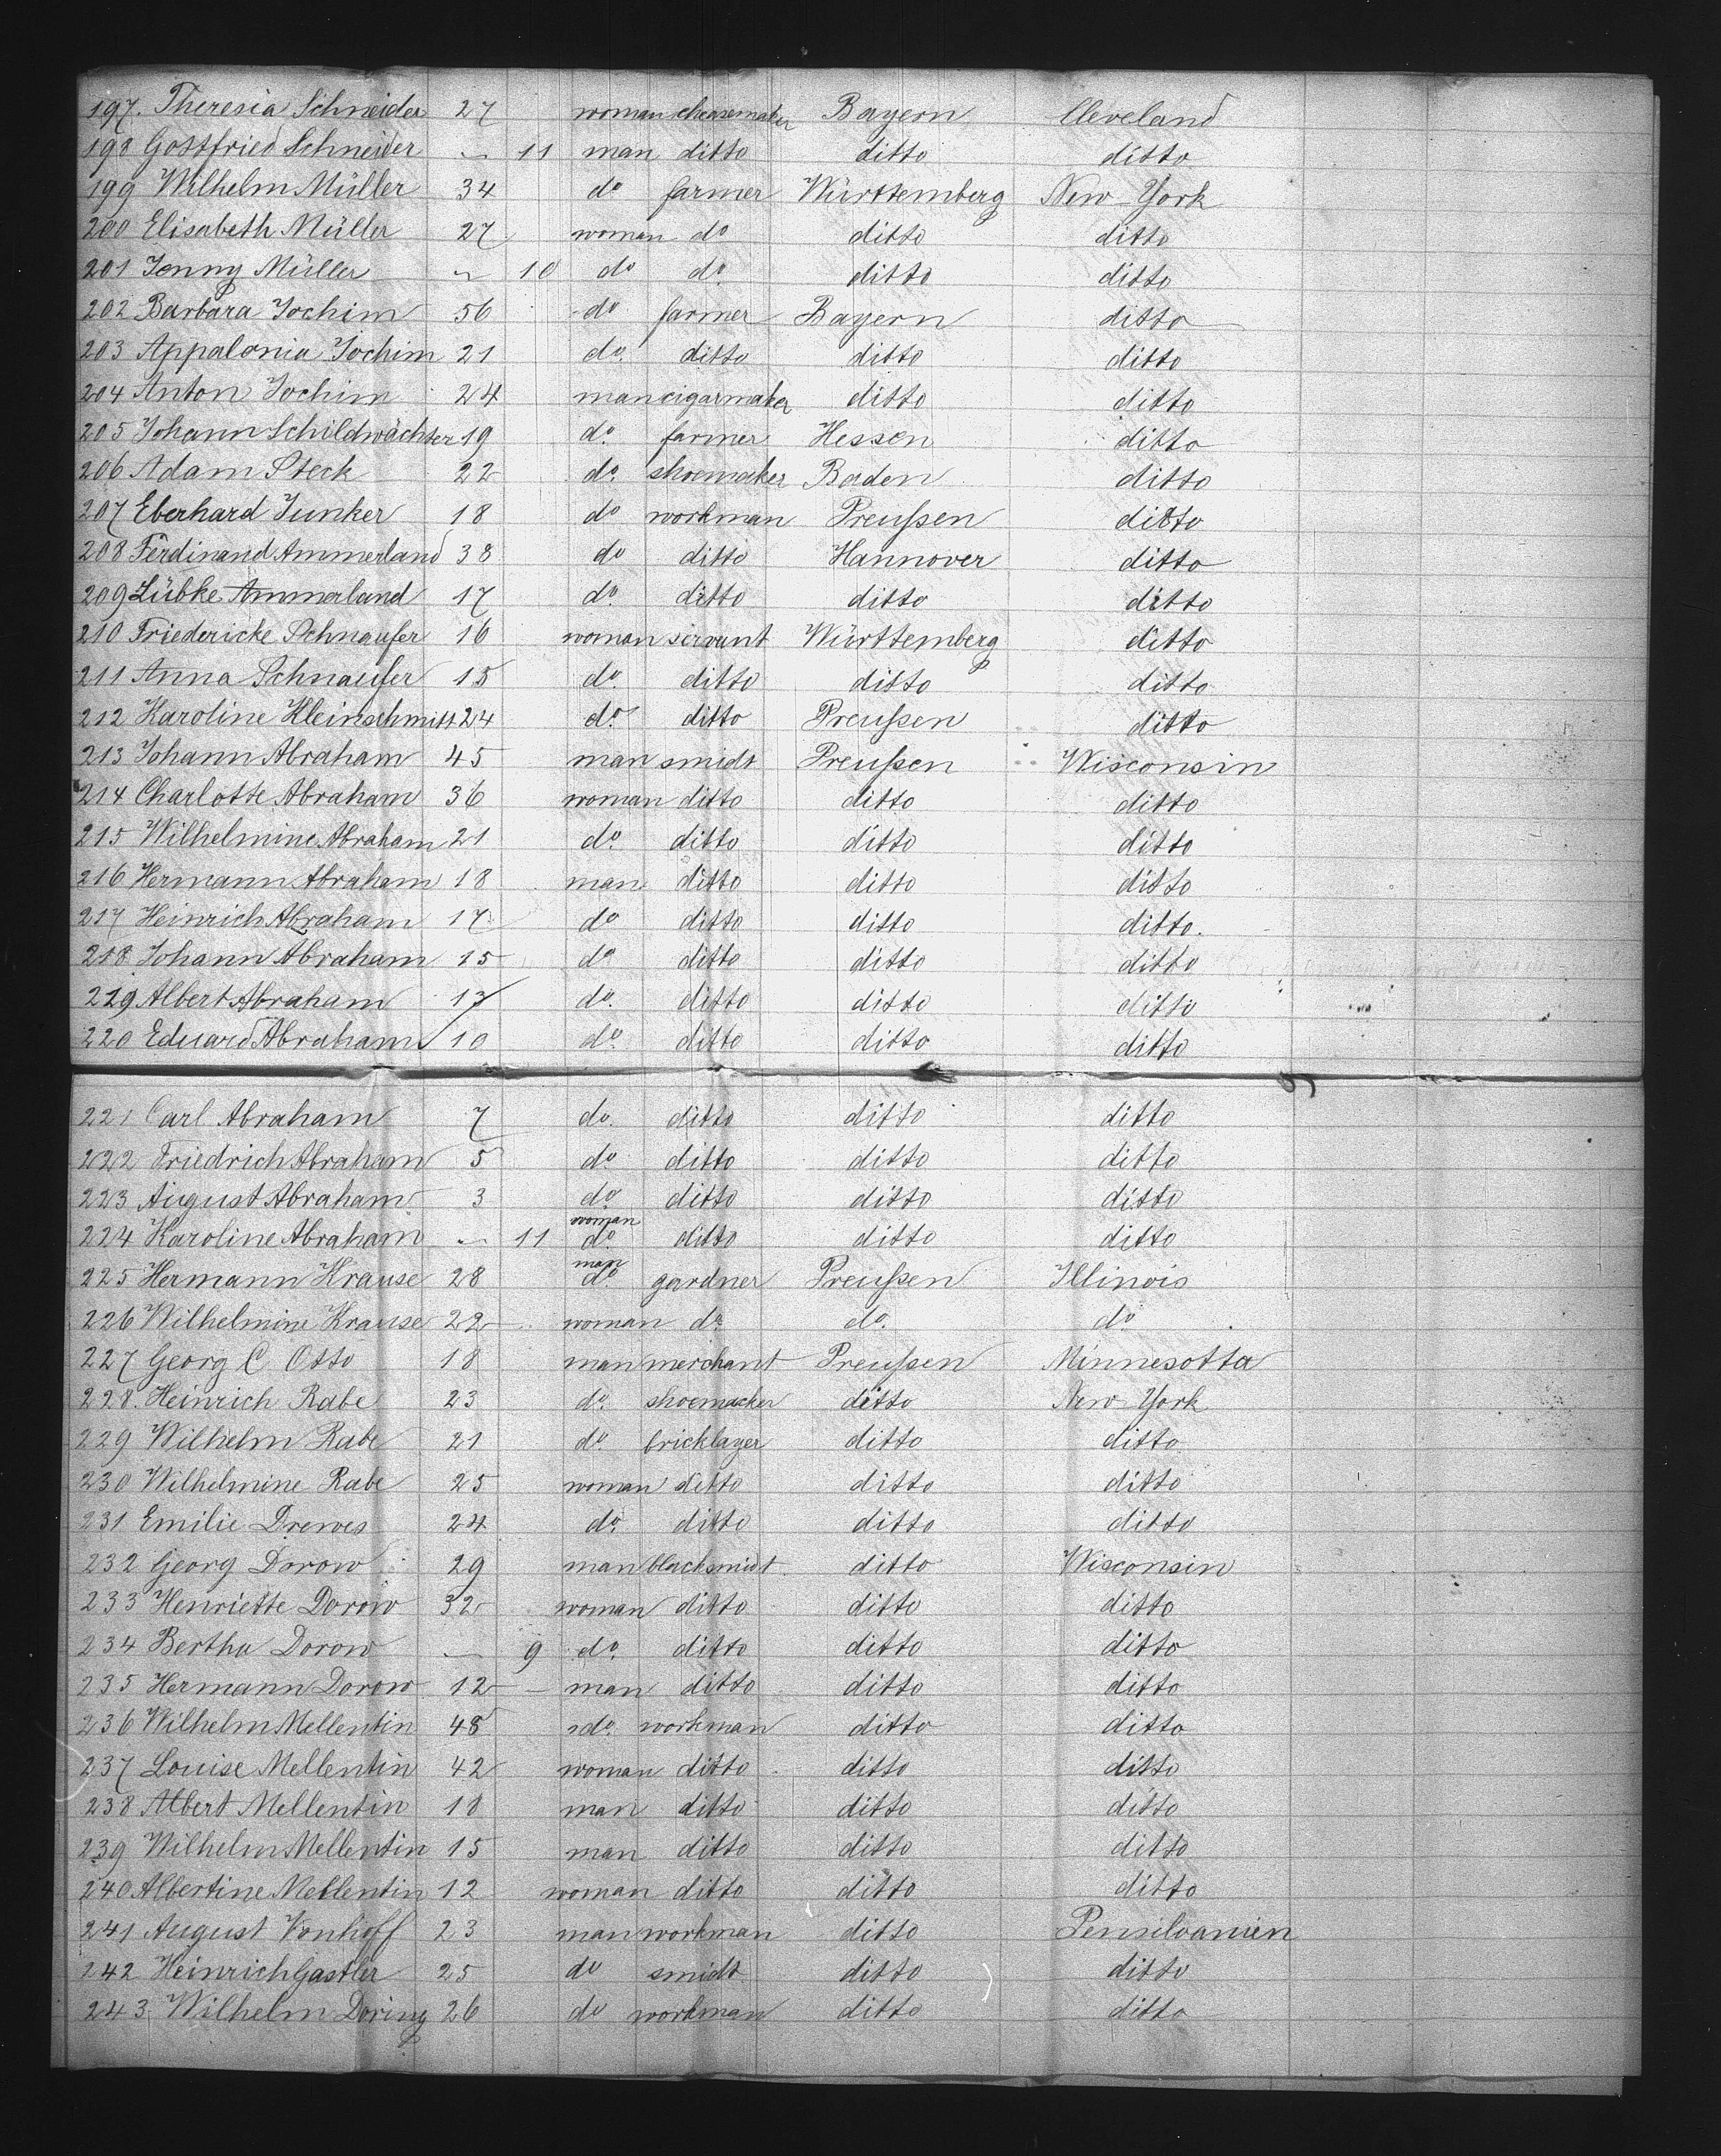 197. Theresia Schneider 27 woman cheasemaker Bayern Cleveland
198 Gottfried Schneider — 11 man ditto ditto ditto
199 Wilhelm Müller 34 do farmer Württemberg New-York
200 Elisabeth Müller 27 woman do ditto ditto
201 Jenny Müller — 10 do do ditto ditto
202 Barbara Jochim 56 do farmer Bayern ditto
203 Appalonia Jochim 21 do ditto ditto ditto
204 Anton Jochim 24 man cigarmaker ditto ditto
205 Johann Schildwächter 19 do farmer Hessen ditto
206 Adam Steck 22 do shoemaker Baden ditto
207 Eberhard Junker 18 do workman Preußen ditto
208 Ferdinand Ammerland 38 do ditto Hannover ditto
209 Lübke Ammerland 17 do ditto ditto ditto
210 Friedericke Schnaufer 16 woman servant Württemberg ditto
211 Anna Schnaufer 15 do ditto ditto ditto
212 Karoline Kleinschmitt 24 do ditto Preußen ditto
213 Johann Abraham 45 man smidt Preußen Wisconsin
214 Charlotte Abraham 36 woman ditto ditto ditto
215 Wilhelmine Abraham 21 do ditto ditto ditto
216 Hermann Abraham 18 man ditto ditto ditto
217 Heinrich Abraham 17 do ditto ditto ditto.
218 Johann Abraham 15 do ditto ditto ditto
219 Albert Abraham 13 do ditto ditto ditto
220 Eduard Abraham 10 do ditto ditto ditto
221 Carl Abraham 7 do ditto ditto ditto
222 Friedrich Abraham 5 do ditto ditto ditto
223 August Abraham 3 do ditto ditto ditto
224 Karoline Abraham — 11 woman do ditto ditto ditto
225 Hermann Krause 28 man do gardner Preußen Illinois
226 Wilhelmine Krause 22 woman do do do
227 Georg C Otto 18 man merchant Preußen Minnesotta
228. Heinrich Rabe 23 do shoemacker ditto New-York
229 Wilhelm Rabe 21 do bricklayer ditto ditto
230 Wilhelmine Rabe 25 woman ditto ditto ditto
231 Emilie Drewes 24 do ditto ditto ditto
232 Georg Dorow 29 man blacksmidt ditto Wisconsin
233 Henriette Dorow 32 woman ditto ditto ditto
234 Bertha Dorow — 9 do ditto ditto ditto
235 Hermann Dorow 12 — man ditto ditto ditto
236 Wilhelm Mellentin 48 do workman ditto ditto
237 Louise Mellentin 42 woman ditto ditto ditto
238 Albert Mellentin 18 man ditto ditto ditto
239 Wilhelm Mellentin 15 man ditto ditto ditto
240 Albertine Mellentin 12 woman ditto ditto ditto
241 August Vonhoff 23 man workman ditto Pensilvanien
242 Heinrich Gastler 25 do smidt ditto ditto
243 Wilhelm Doring 26 do workman ditto ditto